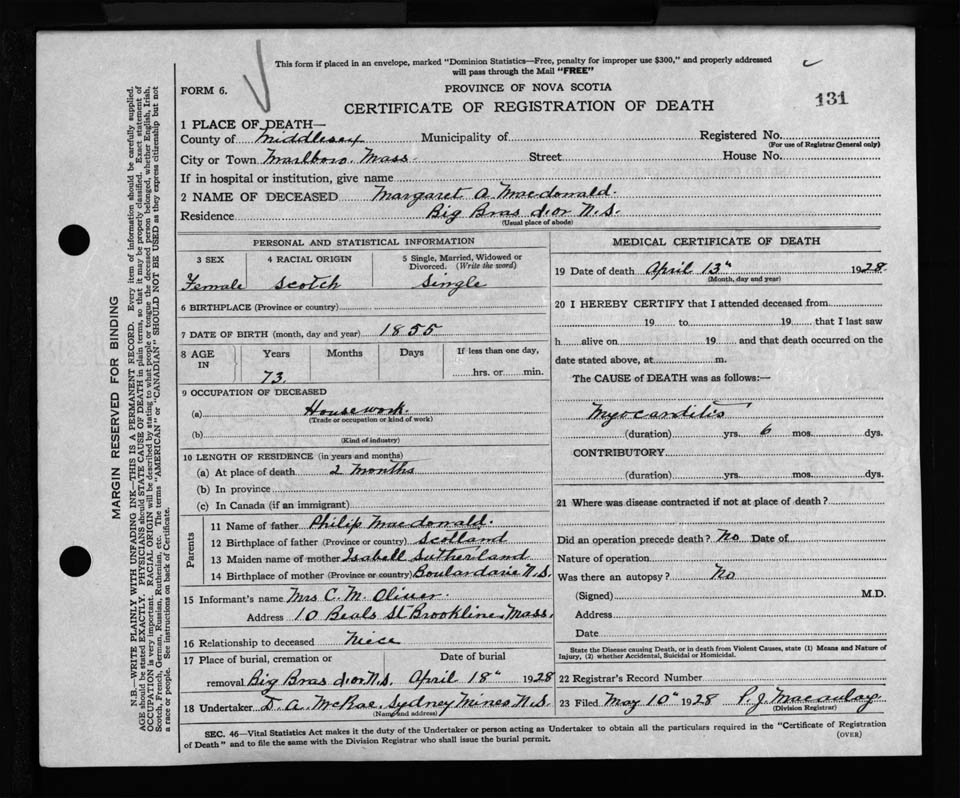 This form if placed in an envelope, marked "Dominion Statistics—Free, penalty for improper use $300," and properly addressed
will pass through the Mail "FREE"
FORM 6.
PROVINCE OF NOVA SCOTIA
CERTIFICATE OF REGISTRATION OF DEATH
131
1 PLACE OF DEATH—
County of Middlesex Municipality of Registered No.
(For use of Registrar General only)
City or Town Marlboro. Mass. Street House No.
If in hospital or institution, give name
2 NAME OF DECEASED Margaret A. Macdonald.
Residence Big Bras d'or N.S.
(Usual place of abode)
PERSONAL AND STATISTICAL INFORMATION
3 SEX 4 RACIAL ORIGIN 5 Single, Married, Widowed or Divorced. (Write the word)
Female Scotch Single
6 BIRTHPLACE (Province or country)
7 DATE OF BIRTH (month, day and year) 1855
8 AGE IN Years Months Days If less than one day,
73. hrs. or min.
9 OCCUPATION OF DECEASED
(a) Housework.
(Trade or occupation or kind of work)
(b)
(Kind of industry)
10 LENGTH OF RESIDENCE (in years and months)
(a) At place of death 2 months
(b) In province
(c) In Canada (if an immigrant)
Parents
11 Name of father Philip Macdonald.
12 Birthplace of father (Province or country) Scotland
13 Maiden name of mother Isabell Sutherland
14 Birthplace of mother (Province or country) Boulardarie N.S.
15 Informant's name Mrs C. M. Oliver
Address 10 Beals St Brookline Mass.
16 Relationship to deceased Niece
17 Place of burial, cremation or Date of burial
removal Big Bras d'or N.S. April 18" 1928
18 Undertaker D. A. McRae, Sydney Mines N.S.
(Name and address)
MEDICAL CERTIFICATE OF DEATH
19 Date of death April 13" 1928.
(Month, day and year)
20 I HEREBY CERTIFY that I attended deceased from
19 to 19 that I last saw
h alive on 19 and that death occurred on the
date stated above, at m.
The CAUSE of DEATH was as follows:—
Myocarditis
(duration) yrs. 6 mos. dys.
CONTRIBUTORY
(duration) yrs. mos. dys.
21 Where was disease contracted if not at place of death?
Did an operation precede death? No Date of
Nature of operation
Was there an autopsy? No
(Signed) M.D.
Address
Date
State the Disease causing Death, or in death from Violent Causes, state (1) Means and Nature of
Injury, (2) whether Accidental, Suicidal or Homicidal.
22 Registrar's Record Number
23 Filed May 10" 1928 P. J. Macaulay
(Division Registrar)
SEC. 46—Vital Statistics Act makes it the duty of the Undertaker or person acting as Undertaker to obtain all the particulars required in the "Certificate of Registration
of Death" and to file the same with the Division Registrar who shall issue the burial permit.
(OVER)
MARGIN RESERVED FOR BINDING
N.B.—WRITE PLAINLY WITH UNFADING INK—THIS IS A PERMANENT RECORD. Every item of information should be carefully supplied.
AGE should be stated EXACTLY. PHYSICIANS should STATE CAUSE OF DEATH in plain terms, so that it may be properly classified. Exact statement of
OCCUPATION is very important. RACIAL ORIGIN will be described by stating to what people or tongue the deceased person belonged, whether English, Irish,
Scotch, French, German, Russian, Ruthenian, etc. The terms "AMERICAN" or "CANADIAN" SHOULD NOT BE USED as they express citizenship but not
a race or people. See instructions on back of Certificate.